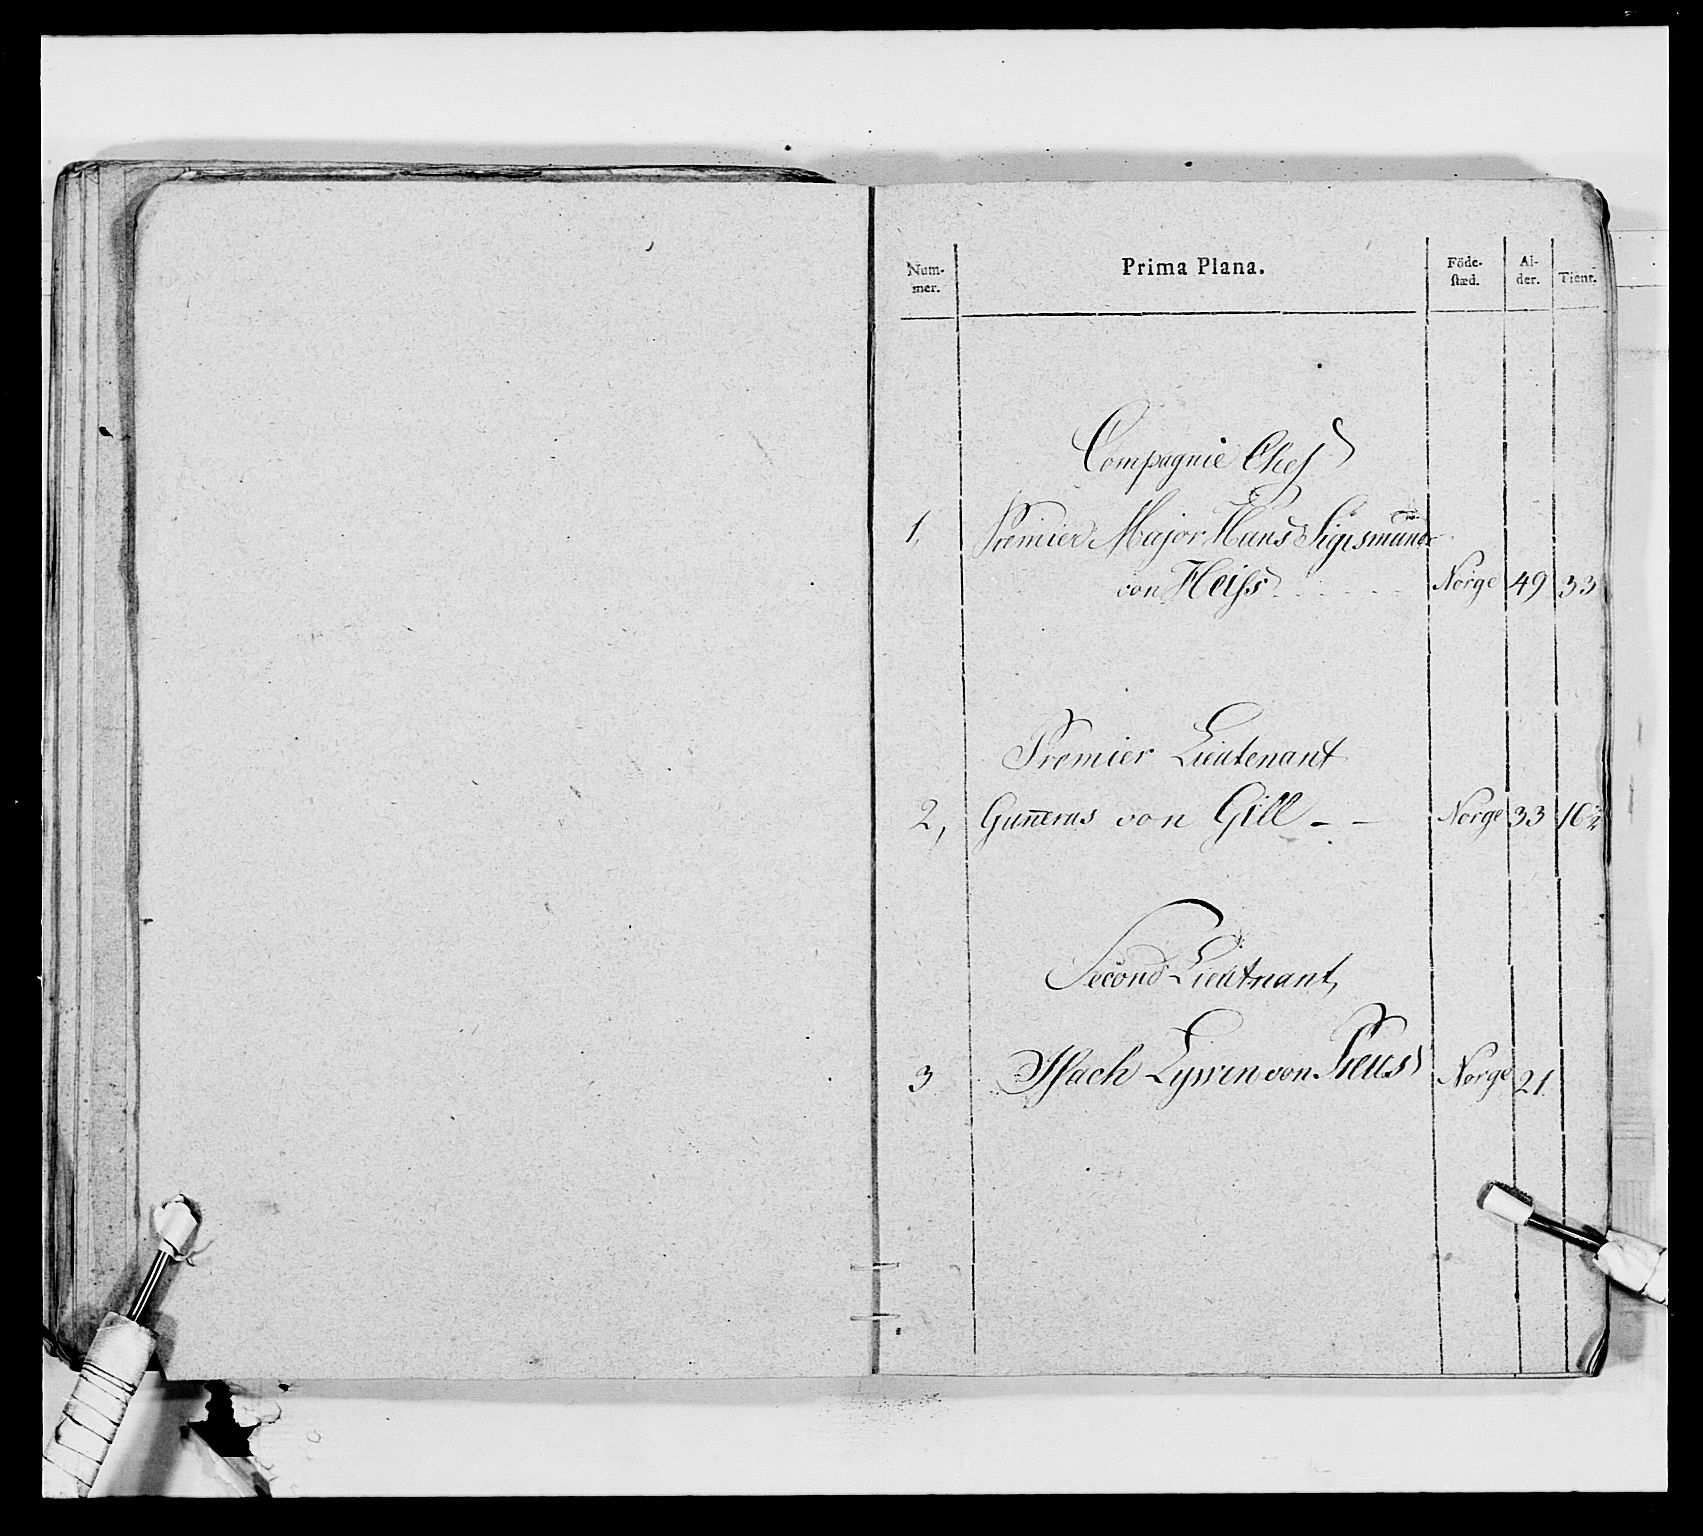 Num-
mer.
Prima Plana.
Föde-
stæd.
Al-
der.
Tient.
Compagnie Chef
1, Premier Major Hans Sigismund
von Heiss Norge 49 33
Premier Lieutenant
2, Gunerus von Gill - - Norge 33 16
Second Lieutnant,
3 von Norge 21